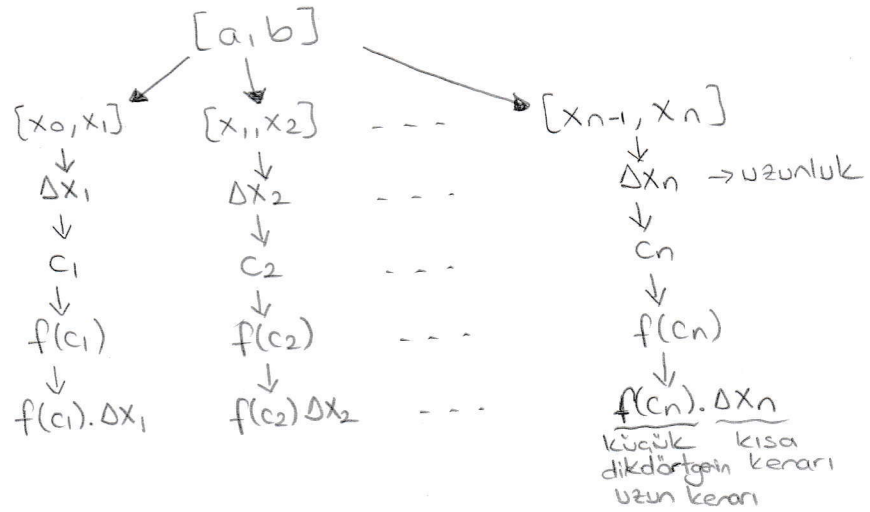 [a, b]
[x₀, x₁] [x₁, x₂] - - - [xₙ₋₁, xₙ]
↓ ↓ ↓
Δx₁ Δx₂ - - - Δxₙ → uzunluk
↓ ↓ ↓
c₁ c₂ - - - cₙ
↓ ↓ ↓
f(c₁) f(c₂) - - - f(cₙ)
↓ ↓ ↓
f(c₁).Δx₁ f(c₂)Δx₂ - - - f(cₙ).Δxₙ
küçük kısa
dikdörtgenin kenarı
uzun kenarı